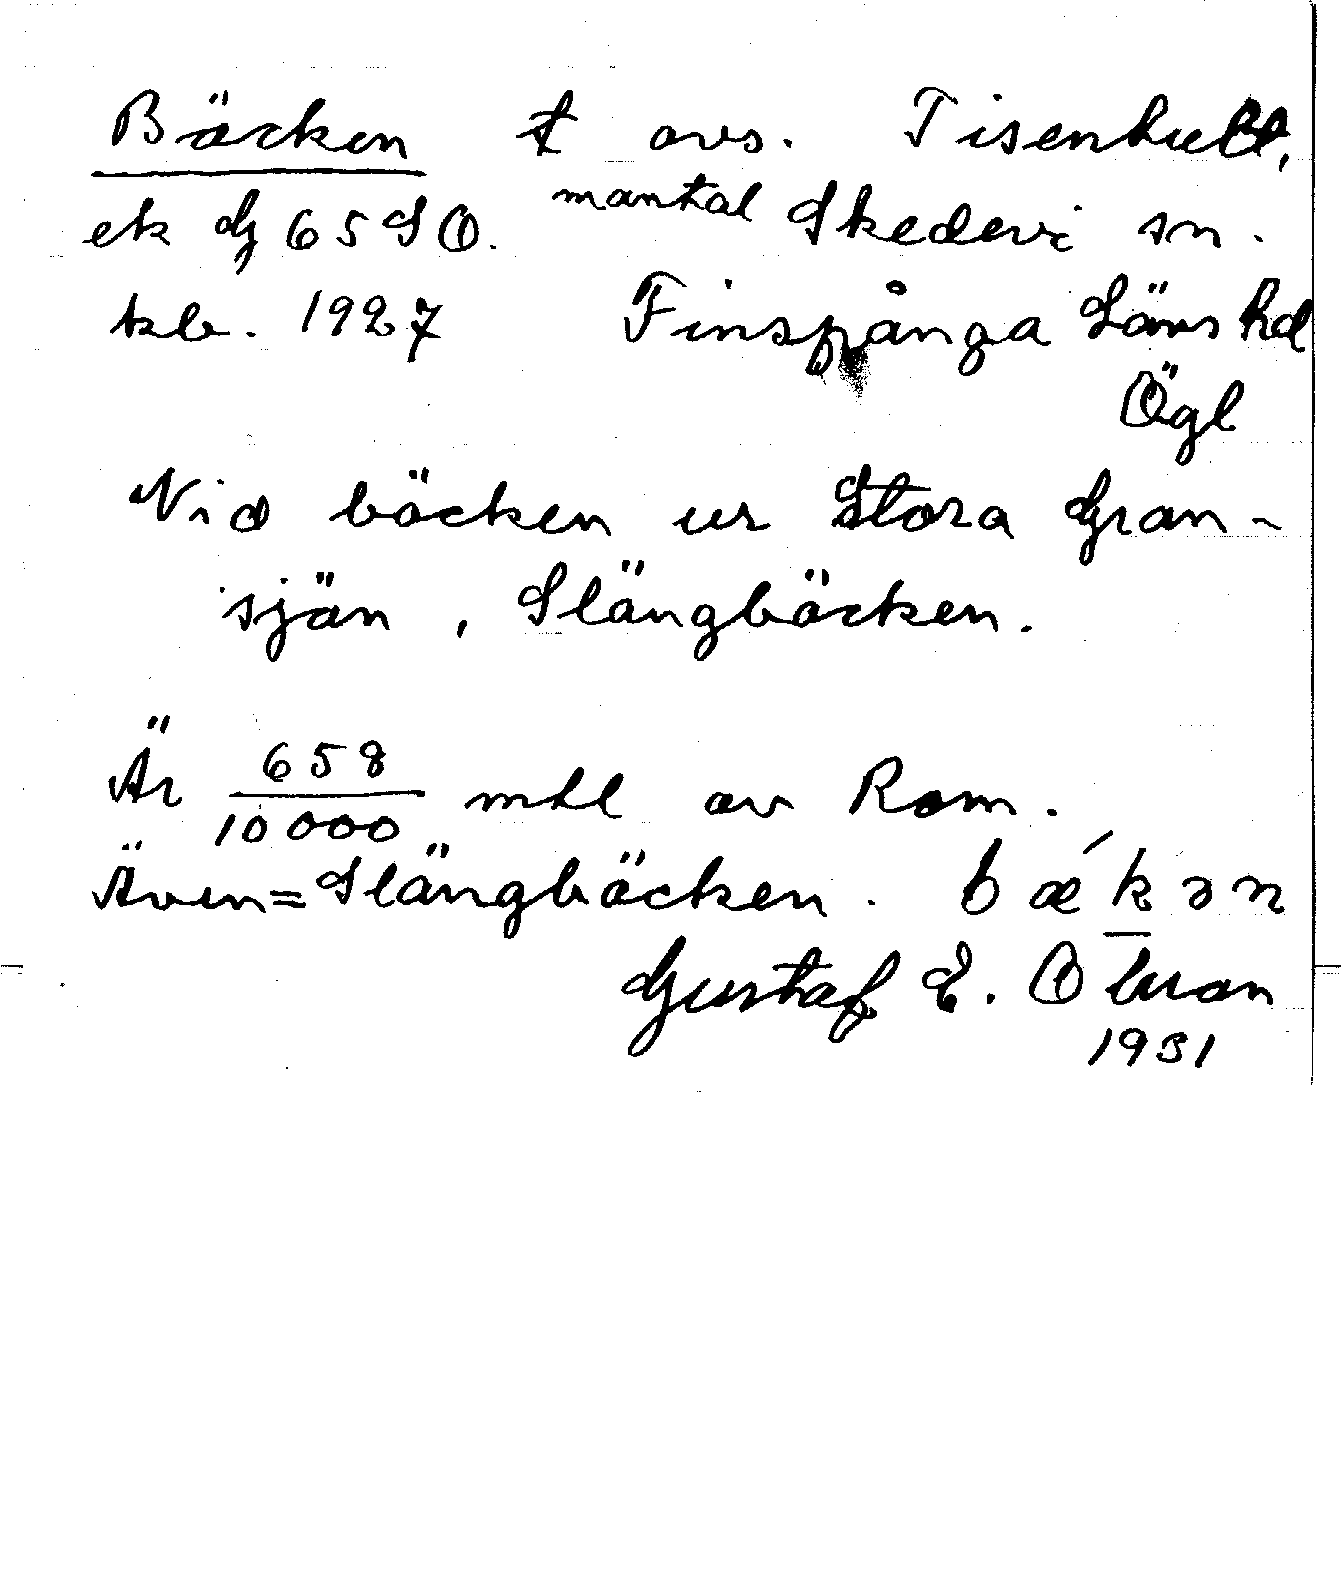 Bäcken t avs. Tisenhult,
ek G 65 SO. mantal Skedevi sn.
tkb. 1927 Finspånga Läns hd
Ögl
Vid bäcken ur Stora Gran-
sjön, Slängbäcken.
Är 658/10000 mtl av Rom.
Även = Slängbäcken. bǽkən
Gustaf E. Olsson
1931